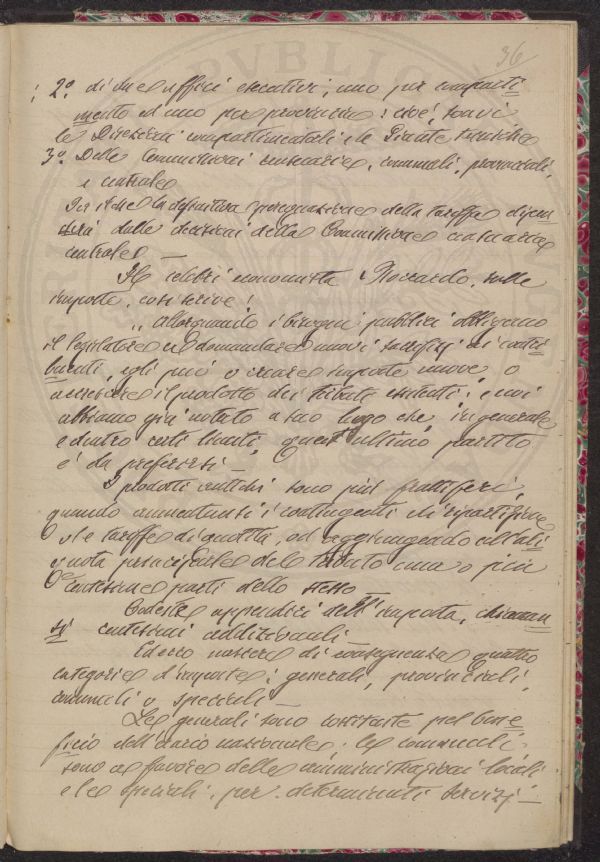 36
2º di due uffici esecutivi, uno per comparti
mento ed uno per provincia: cioè, sonvi
le Direzioni compartimentali e le Giunte tecniche
3º Delle Commissioni censuarie, comunali, provinciali,
e centrale
la definitiva perequazione delle tariffe dipen
derà dalle decisioni della Commissione censuaria
centrale —
Il celebri economista Boccardo, sulle
imposte, così scrive:
„ Allorquando i bisogni pubblici obbligano
il legislatore a domandare nuovi sacrifizj ai contri
buenti, egli può o creare imposte nuove o
accrescere il prodotto dei tributi esistenti; e noi
abbiamo già notato a suo luogo che, in generale
e dentro certi limiti, quest'ultimo partito
è da preferirsi —
I prodotti antichi sono più fruttiferi,
quando aumentansi i contingenti di ripartizione
o le tariffe di quotità, od aggiungendo all'ali
quota principale del tributo una o più
centesime parti dello stesso —
Codeste appendici dell'imposta, chiaman
si centesimi addizionali —
Ed ecco nascere di conseguenza quattro
categorie d'imposte: generali, provinciali,
comunali o speciali —
Le generali sono costituite pel bene
ficio dell'erario nazionale; le comunali
sono a favore delle amministrazioni locali
e le speciali, per determinati servizj —